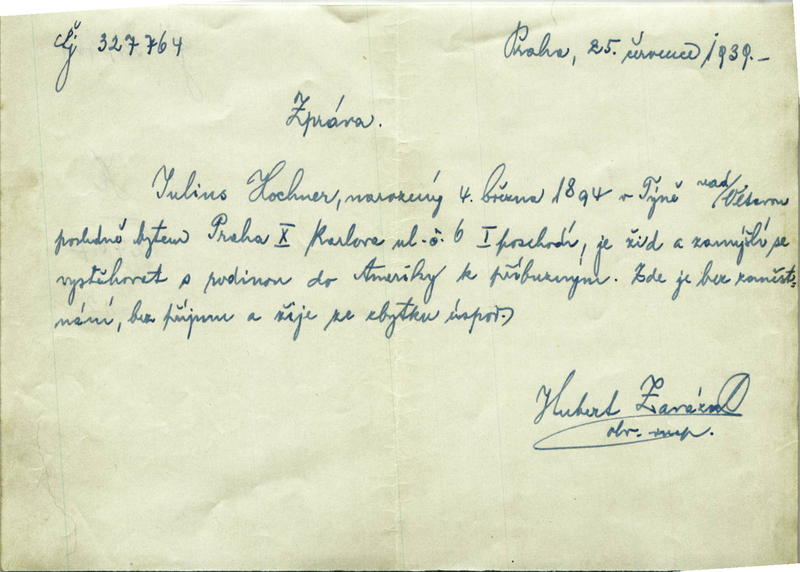 Čj 327764
Praha, 25. července 1939.-
Zpráva.
Julius Hochner, narozený 4. března 1894 v Týně nad/Vltavou
posledně bytem Praha X Karlova ul. č. 6 I poschodí, je žid a zamýšlí se
vystěhovat s rodinou do Ameriky k příbuzným. Zde je bez zaměst-
nání, bez příjmu a žije ze zbytku úspor.
Hubert
obv. insp.